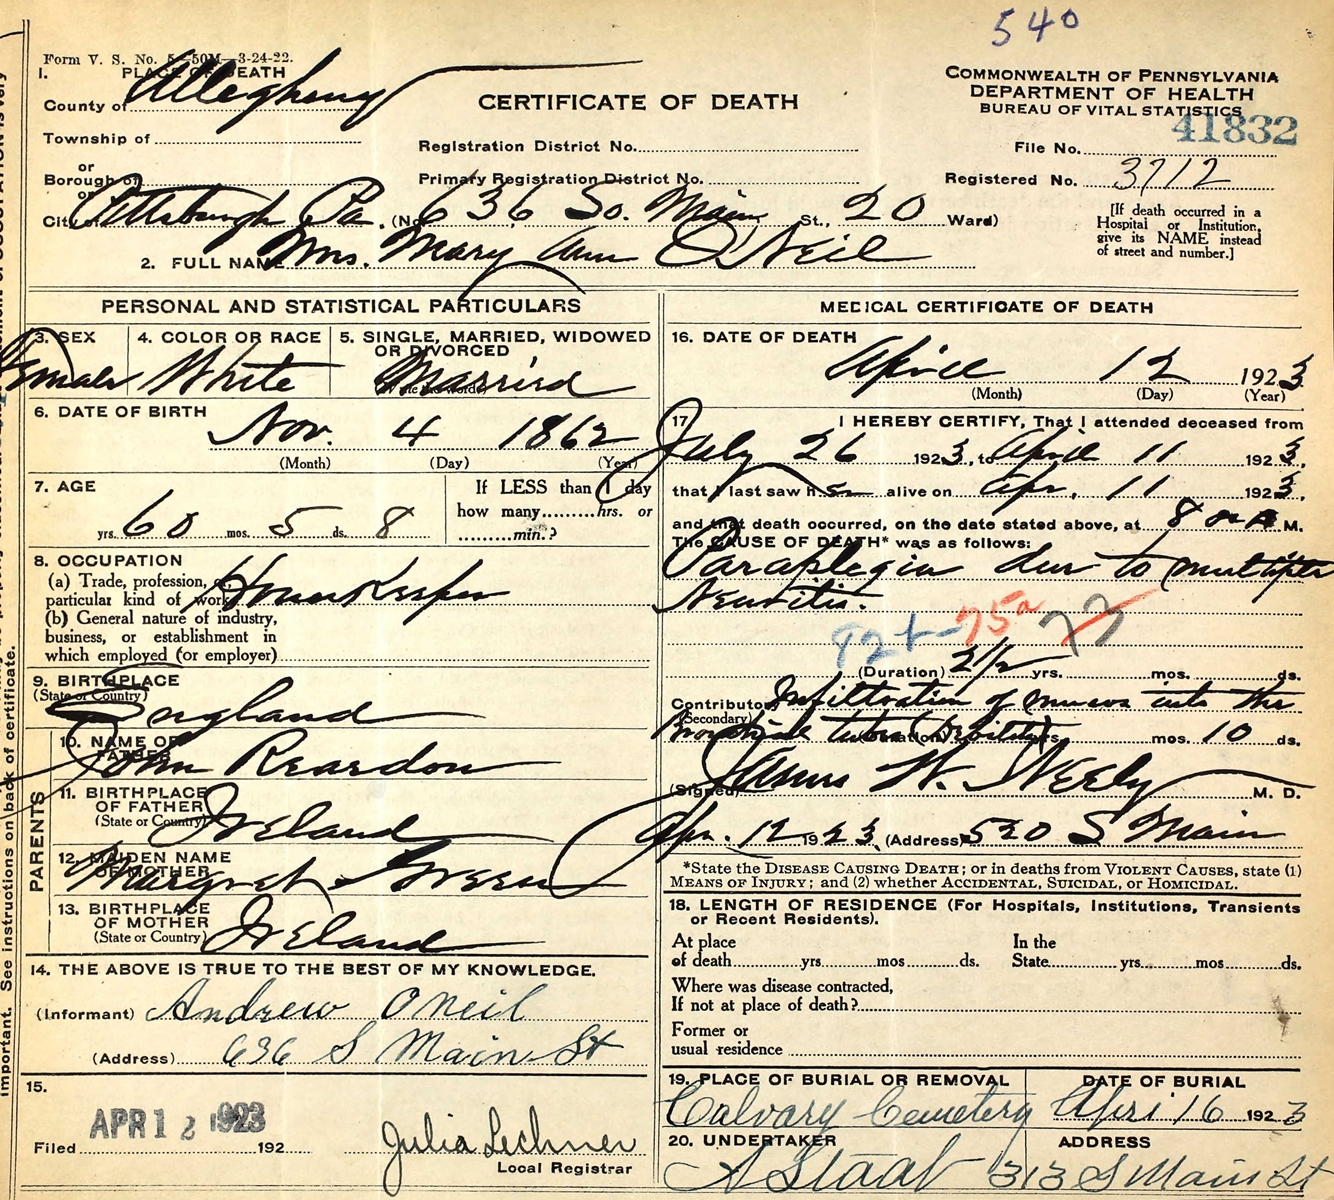 540
Form V. S. No. 5—50M—3-24-22.
1. PLACE OF DEATH
County of Allegheny
Township of
or
Borough of
or
City of Pittsburgh Pa. (No. 636 So. Main St., 20 Ward)
CERTIFICATE OF DEATH
Registration District No.
Primary Registration District No.
COMMONWEALTH OF PENNSYLVANIA
DEPARTMENT OF HEALTH
BUREAU OF VITAL STATISTICS
41832
File No.
Registered No. 3712
[If death occurred in a
Hospital or Institution,
give its NAME instead
of street and number.]
2. FULL NAME Mrs. Mary Ann O'Neil
PERSONAL AND STATISTICAL PARTICULARS
3. SEX
Female
4. COLOR OR RACE
White
5. SINGLE, MARRIED, WIDOWED
OR DIVORCED
(Write the word)
Married
6. DATE OF BIRTH
Nov. 4 1862
(Month) (Day) (Year)
7. AGE
yrs. 60 mos. 5 ds. 8
If LESS than 1 day
how many.........hrs. or
.........min.?
8. OCCUPATION
(a) Trade, profession, or
particular kind of work Housekeeper
(b) General nature of industry,
business, or establishment in
which employed (or employer)
9. BIRTHPLACE
(State or Country)
England
PARENTS
10. NAME OF
FATHER
John Reardon
11. BIRTHPLACE
OF FATHER
(State or Country)
Ireland
12. MAIDEN NAME
OF MOTHER
Margret Green
13. BIRTHPLACE
OF MOTHER
(State or Country)
Ireland
14. THE ABOVE IS TRUE TO THE BEST OF MY KNOWLEDGE.
(Informant) Andrew O Neil
(Address) 636 S Main St
15.
Filed APR 12 1923 192
Julia Lechner
Local Registrar
MEDICAL CERTIFICATE OF DEATH
16. DATE OF DEATH
April 12 1923
(Month) (Day) (Year)
17 I HEREBY CERTIFY, That I attended deceased from
July 26 1923, to April 11 1923,
that I last saw her alive on Apr. 11 1923,
and that death occurred, on the date stated above, at 8 A M.
The CAUSE OF DEATH* was as follows:
Paraplegia due to multiple
Neuritis.
82+ 75a 77
(Duration) 2 1/2 yrs. mos. ds.
Contributory Infiltration of mucus into the
(Secondary)
Bronchial tubes (Debility)
(Duration) yrs. mos. 10 ds.
(Signed) James W. Neely M. D.
Apr. 12 1923 (Address) 520 S Main
*State the DISEASE CAUSING DEATH; or in deaths from VIOLENT CAUSES, state (1)
MEANS OF INJURY; and (2) whether ACCIDENTAL, SUICIDAL, or HOMICIDAL.
18. LENGTH OF RESIDENCE (For Hospitals, Institutions, Transients
or Recent Residents).
At place
of death yrs. mos ds.
In the
State yrs. mos ds.
Where was disease contracted,
If not at place of death?
Former or
usual residence
19. PLACE OF BURIAL OR REMOVAL
Calvary Cemetery
DATE OF BURIAL
April 16 1923
20. UNDERTAKER
A Staab
ADDRESS
313 S Main St
important. See instructions on back of certificate.